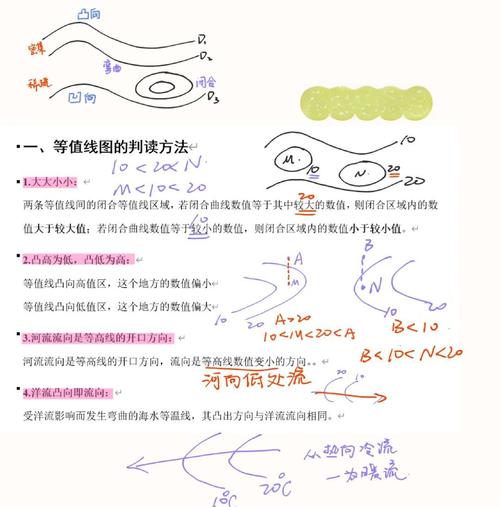 凸向
密集
D₁
弯曲
D₂
稀疏
凹向
闭合
D₃
一、等值线图的判读方法
10<20<N.
M<10<20
10
M
10
N
20
20
1.大大小小:
20
两条等值线间的闭合等值线区域，若闭合曲线数值等于其中较大的数值，则闭合区域内的数
10
值大于较大值；若闭合曲线数值等于较小的数值，则闭合区域内的数值小于较小值。
2.凸高为低，凸低为高:
等值线凸向高值区，这个地方的数值偏小
等值线凸向低值区，这个地方的数值偏大
A
M
10
20
A>20
10<M<20<A
B
N
10
20
B<10.
B<10<N<20
3.河流流向是等高线的开口方向:
河流流向是等高线的开口方向，流向是等高线数值变小的方向。
河向低处流
20
10
4.洋流凸向即流向:
受洋流影响而发生弯曲的海水等温线，其凸出方向与洋流流向相同。
从热向冷流
一为暖流.
10℃
20℃